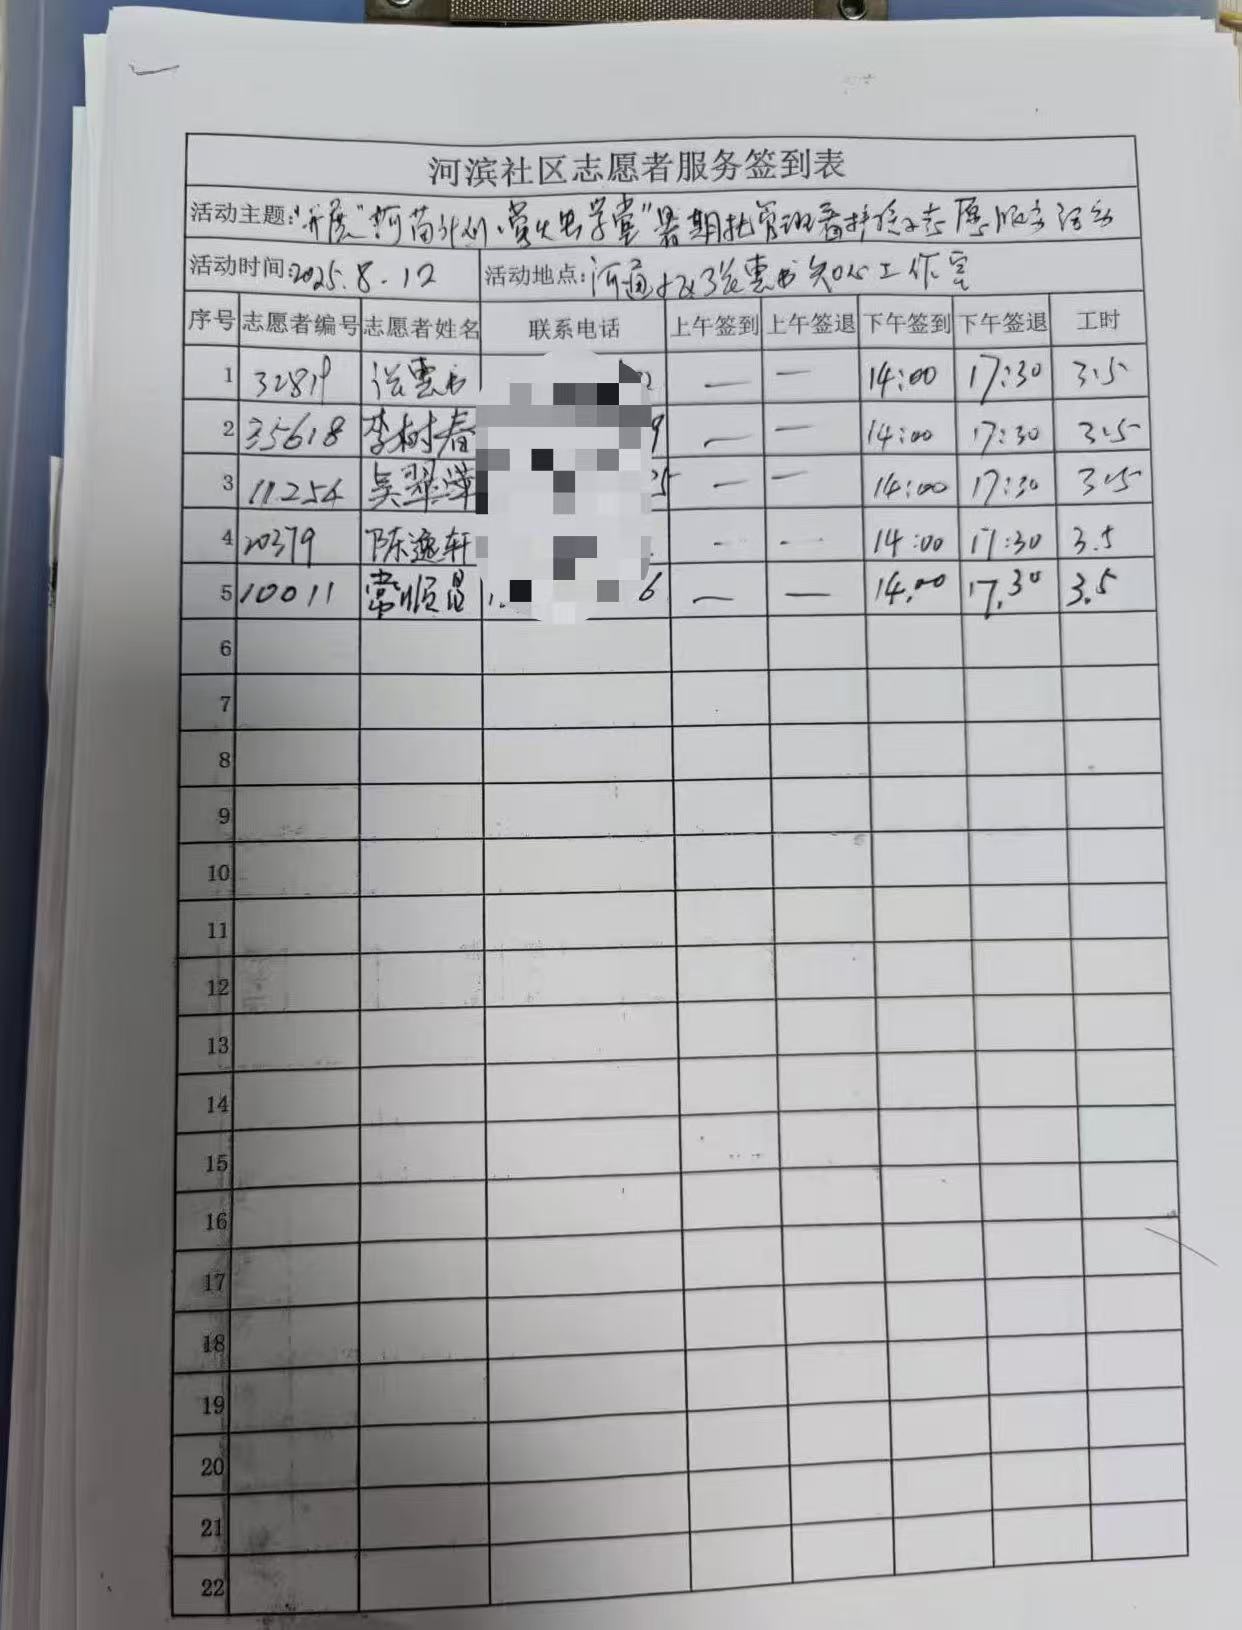 河滨社区志愿者服务签到表
活动主题:"开展"河苗计划·萤火虫学堂"暑期托管班看护孩子志愿服务活动
活动时间:2025.8.12 活动地点:河通社区张惠书知心工作室
序号 志愿者编号 志愿者姓名 联系电话 上午签到 上午签退 下午签到 下午签退 工时
1 32819 张惠书 — — 14:00 17:30 3.5
2 35618 李树春 9 — — 14:00 17:30 3.5
3 11254 吴翠萍 — — 14:00 17:30 3.5
4 20379 陈逸轩 — — 14:00 17:30 3.5
5 10011 常顺昌 6 — — 14.00 17.30 3.5
6
7
8
9
10
11
12
13
14
15
16
17
18
19
20
21
22